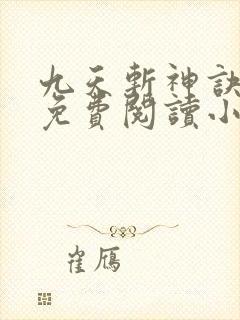 九天斬神訣
免費閱讀小
崔鴈